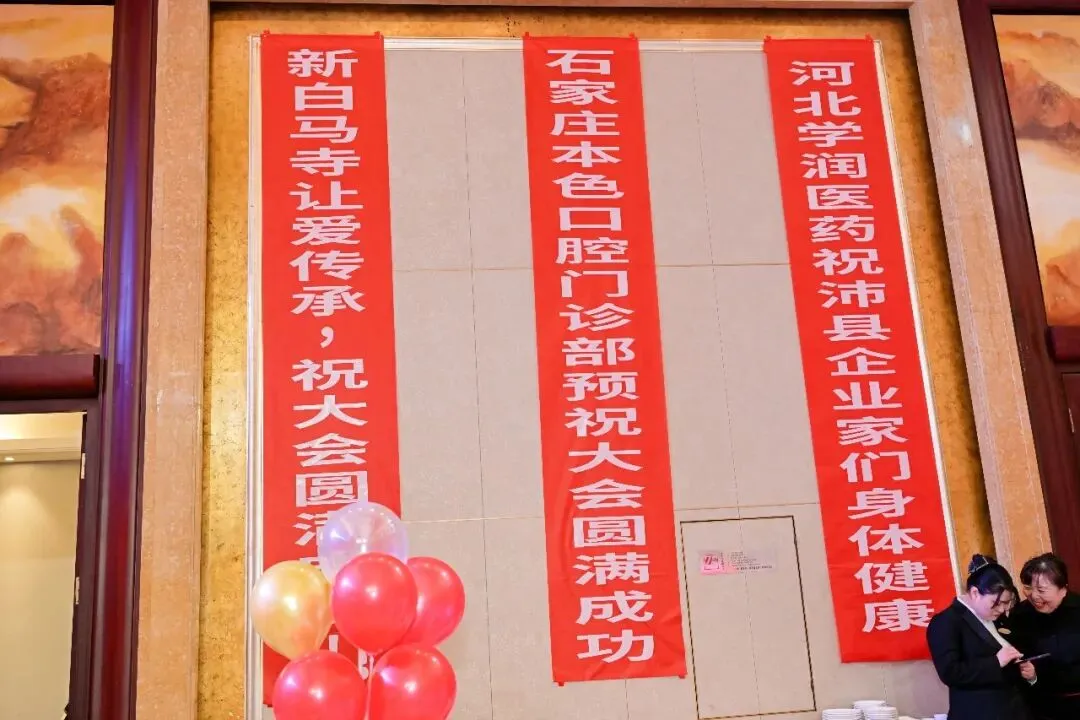 新白马寺让爱传承，祝大会圆满
石家庄本色口腔门诊部预祝大会圆满成功
河北学润医药祝沛县企业家们身体健康